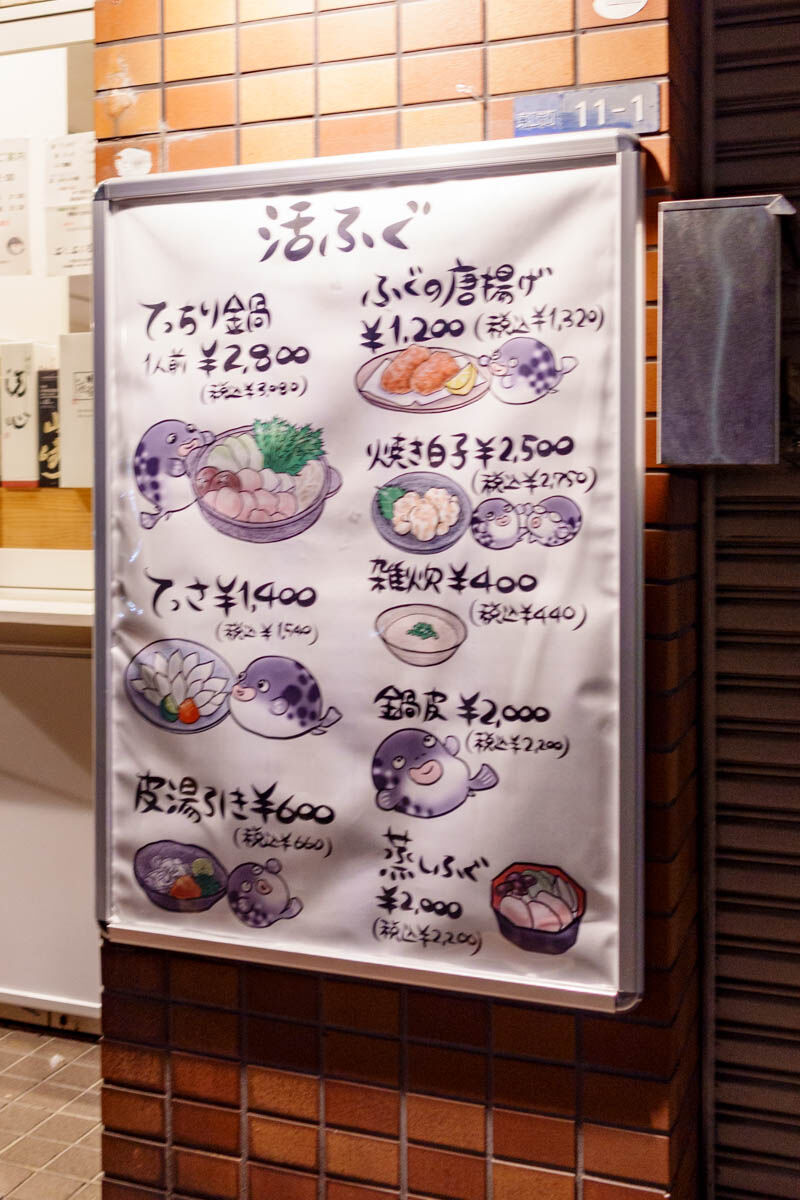 11-1
活ふぐ
てっちり鍋
1人前 ¥2,800
(税込¥3,080)
てっさ¥1,400
(税込¥1,540)
皮湯引き¥600
(税込¥660)
ふぐの唐揚げ
¥1,200(税込¥1,320)
焼き白子¥2,500
(税込¥2,750)
雑炊¥400
(税込¥440)
鍋皮 ¥2,000
(税込¥2,200)
蒸しふぐ
¥2,000
(税込¥2,200)